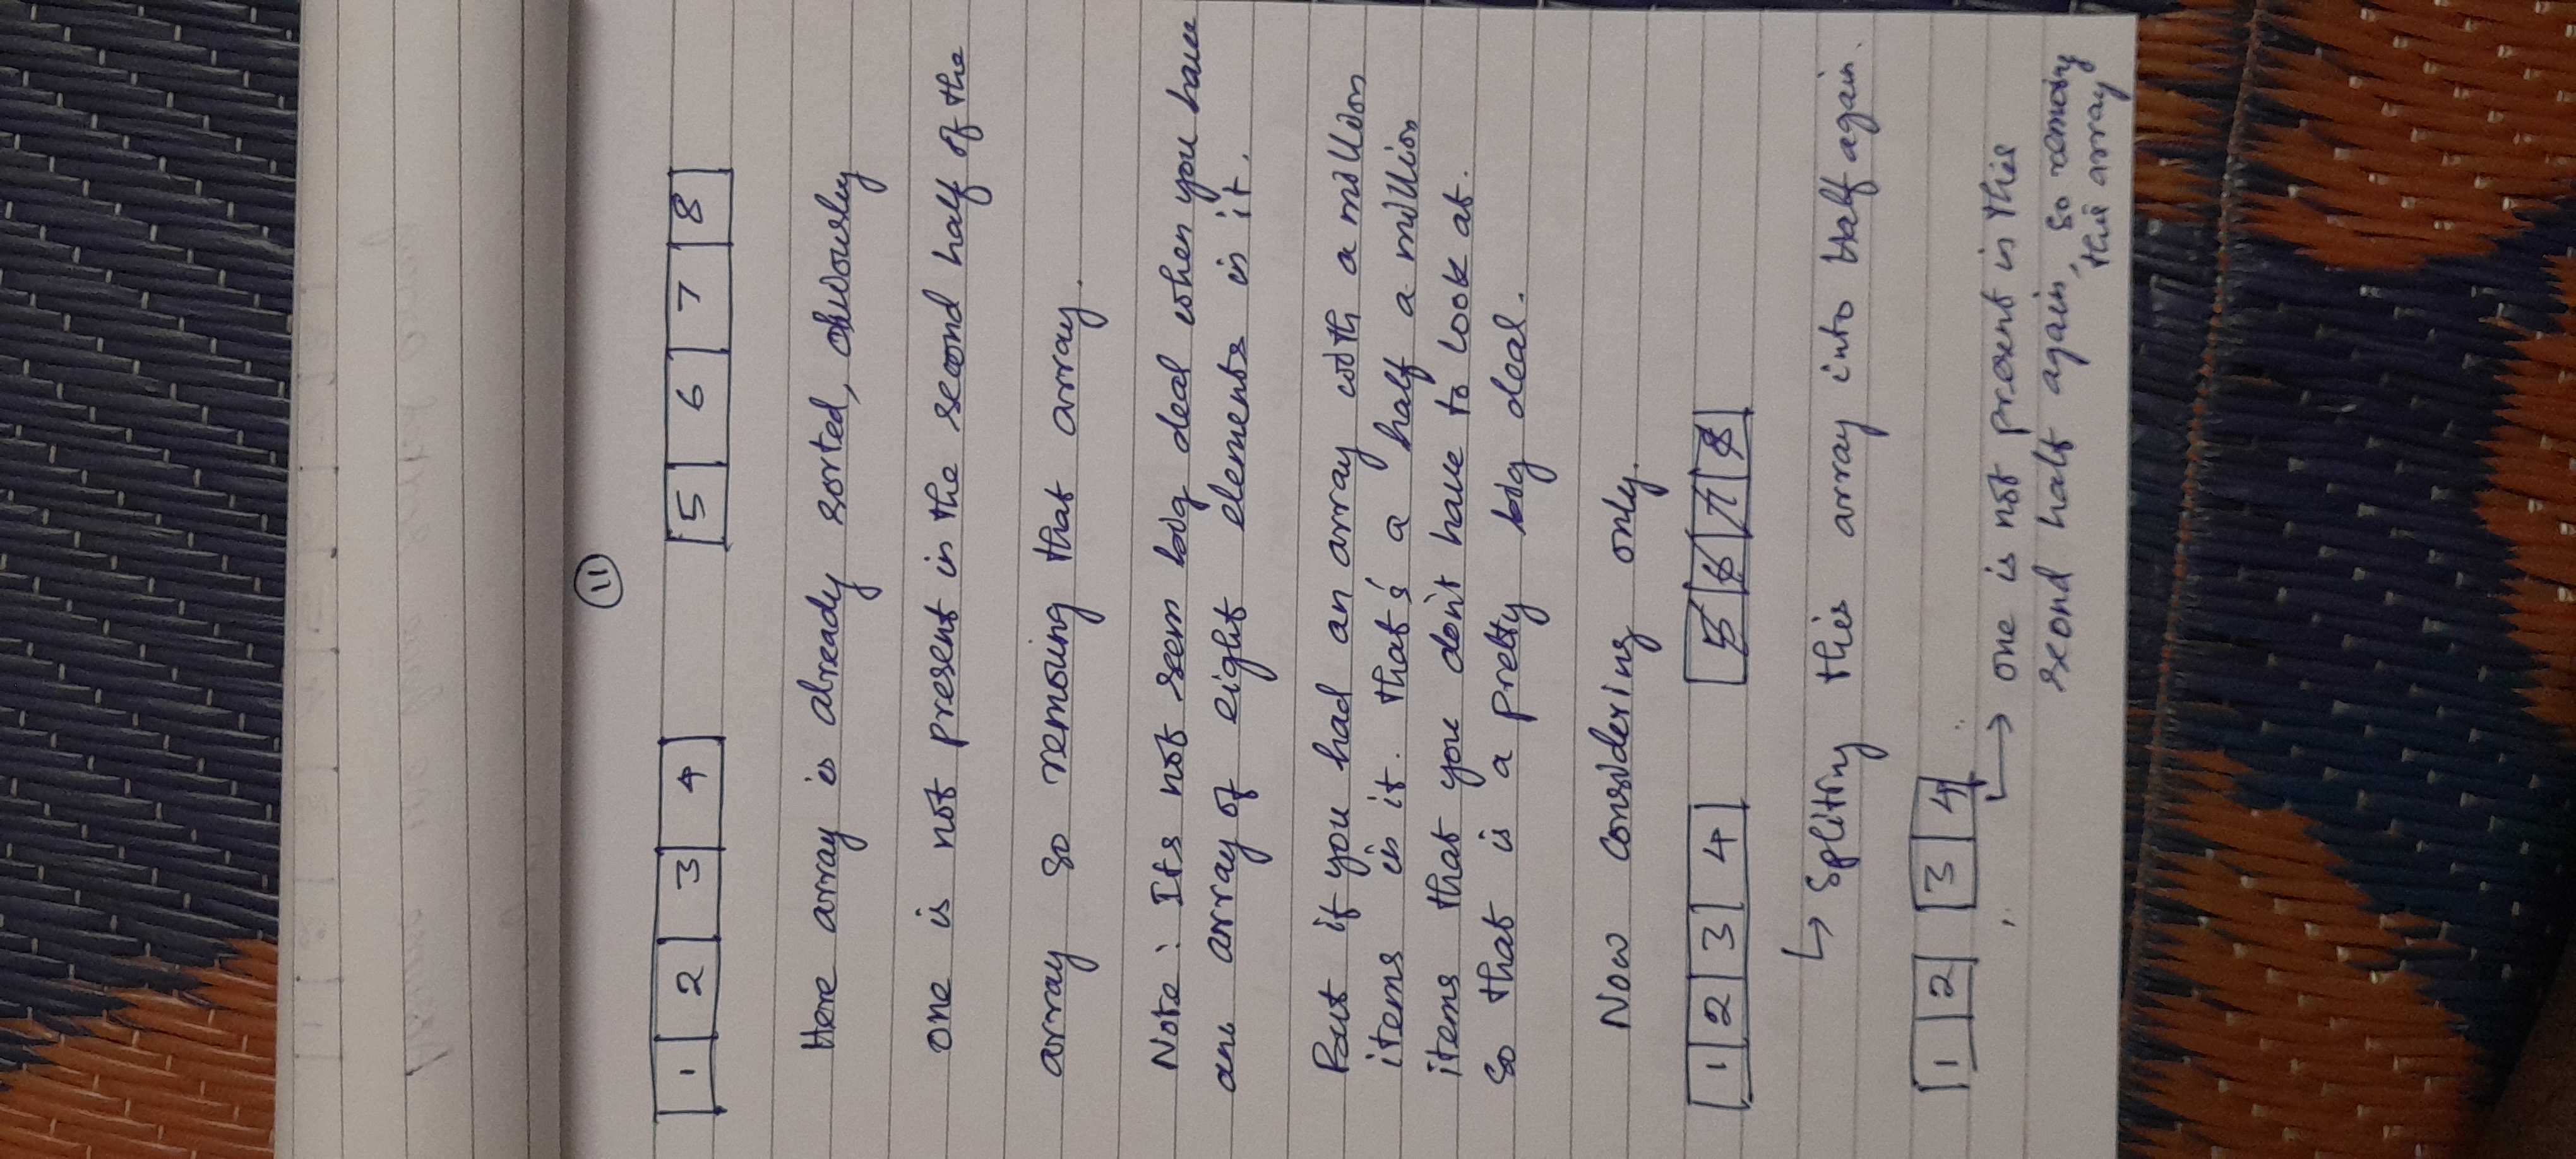 11
1 2 3 4 5 6 7 8
Here array is already sorted, obviously
one is not present in the second half of the
array so removing that array.
Note: Its not seem big deal when you have
an array of eight elements in it.
But if you had an array with a million
items in it. that's a half a million
items that you don't have to look at.
so that is a pretty big deal.
Now considering only.
1 2 3 4 5 6 7 8
↳ Spliting this array into Half again.
1 2 3 4
↳ one is not present in this
second half again, so removing
this array